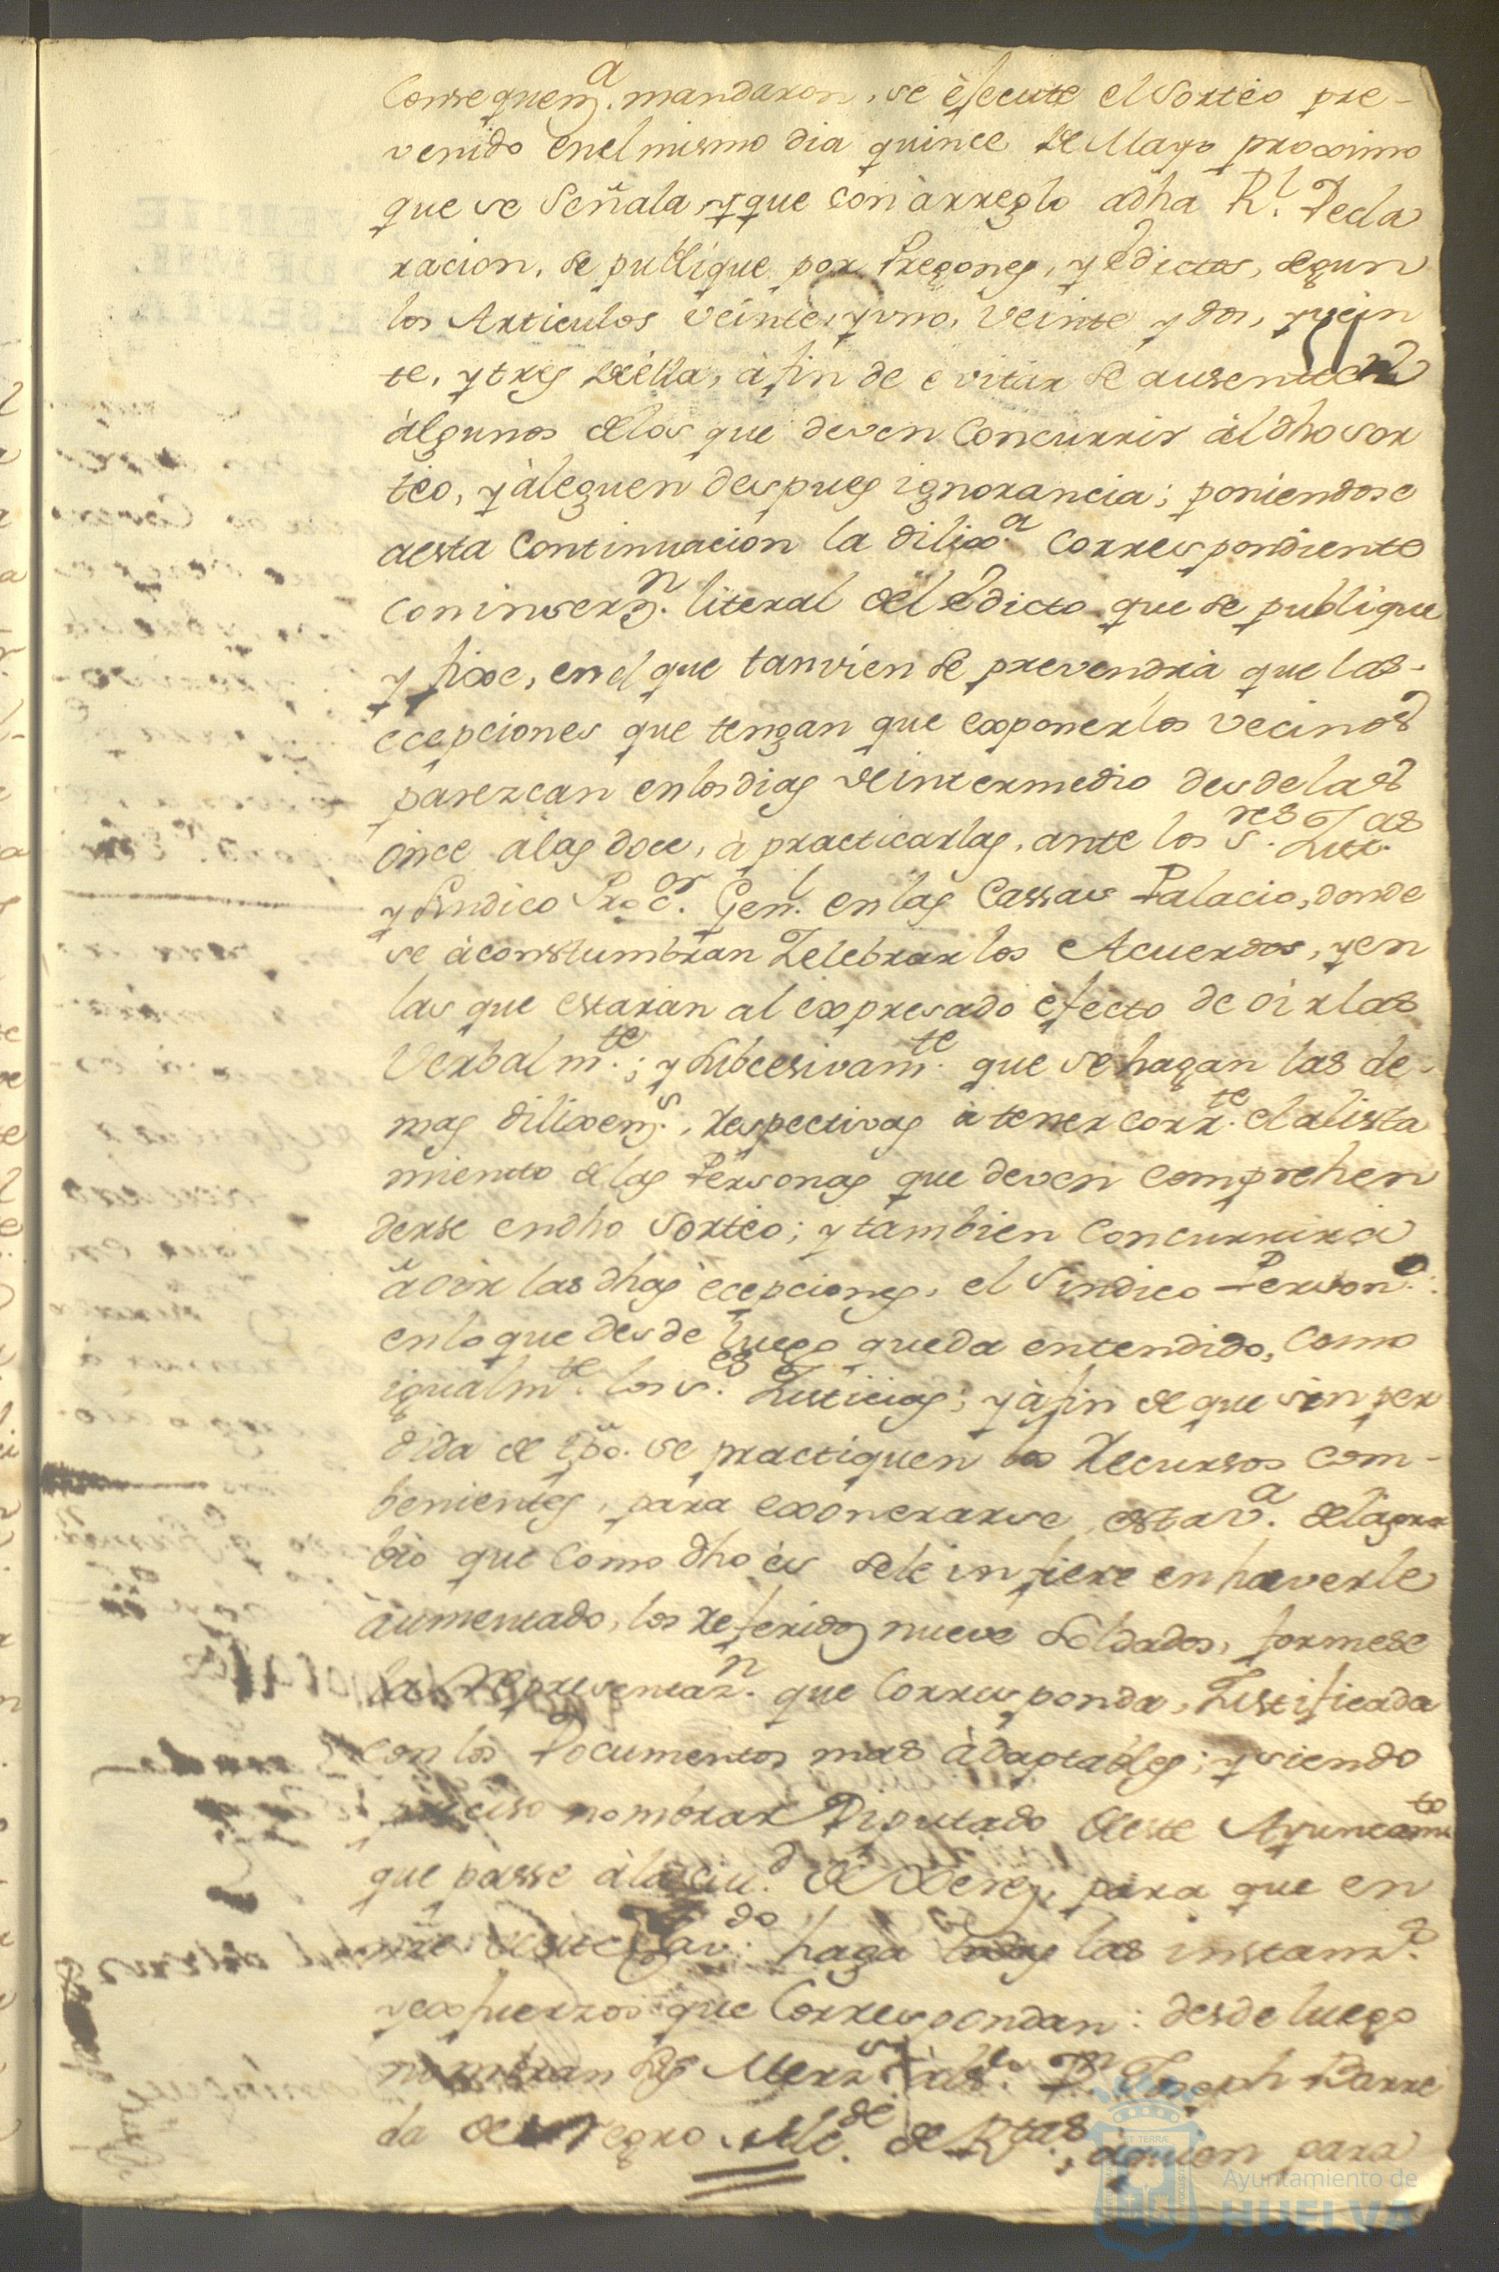 Consequenz.ª mandaron, se èsecute el Sorteo pre-
venido enel mismo dia quince de Mayo proximo
que se Señala, y que con àrreglo adha R.l Decla
racion, se publique por Pregones, y èdictos, segun
los Articulos veinte, y uno, veinte y dos, y vein
te, y tres deella, à fin de evitar se ausenten
àlgunos delos que deven Concurrir àl dho sor
teo, y àleguen despues ignorancia; poniendose
aesta Continuacion la dilix.ª Correspondiente
con inserz.n literal del èdicto que se publique
y fixe, en el que tanvien se prevendrà que las
ecepciones que tengan que exponer los vecinos
parezcan enlos dias deintermedio desde las
once alas doce, à practicarlas, ante los S.res Just.as
y Sindico Proc.or Gen.l en las Cassas Palacio, donde
se àconstumbran Zelebrar los Acuerdos, y en
las que estaran al expresado èfecto de oirlas
Verbalm.te; y subcesivam.te que se hagan las de-
mas dilixenz.s, respectivas à tener corr.te el alista
miento delas Personas que deven comprehen
derse endho Sorteo; y tambien Concurrirà
à oir las dhas ècepciones, el Sindico Person.o:
enlo que desde luego queda entendido, como
igualm.te los S.es Justicias; y à fin de que sin per
dida de tpõ. se practiquen los Recursos com-
benientes, para exonerarse esta V.ª delagra
bio que Como dho ès sele infiere en haverle
àumentado, los referidos nueve Soldados, formese
la representaz.n que Corresponda, Justificada
con los Documentos mas àdaptables; y siendo
preciso nombrar Diputado deeste Ayuntam.to
que passe àla ciu.d de Xerez, para que en
nre. deeste Cav.do haga todas las instanz.s
y exfuerzos que Correspondan: desde luego
nombran sus Merz.s àl s.r D.n Joseph Barre
da de Negro Alc.de de R.tas, aquien para
Ayuntamiento de
HUELVA